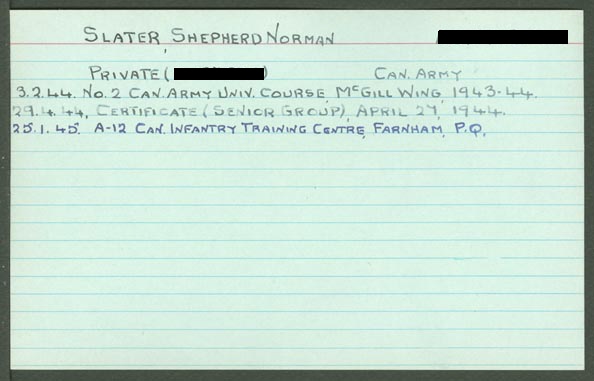 SLATER, SHEPHERD NORMAN
PRIVATE ( ) CAN. ARMY
3.2.44. No. 2 CAN. ARMY UNIV. COURSE, McGILL WING, 1943-44.
29.4.44, CERTIFICATE (SENIOR GROUP), APRIL 27, 1944.
25.1.45. A-12 CAN. INFANTRY TRAINING CENTRE, FARNHAM, P.Q.